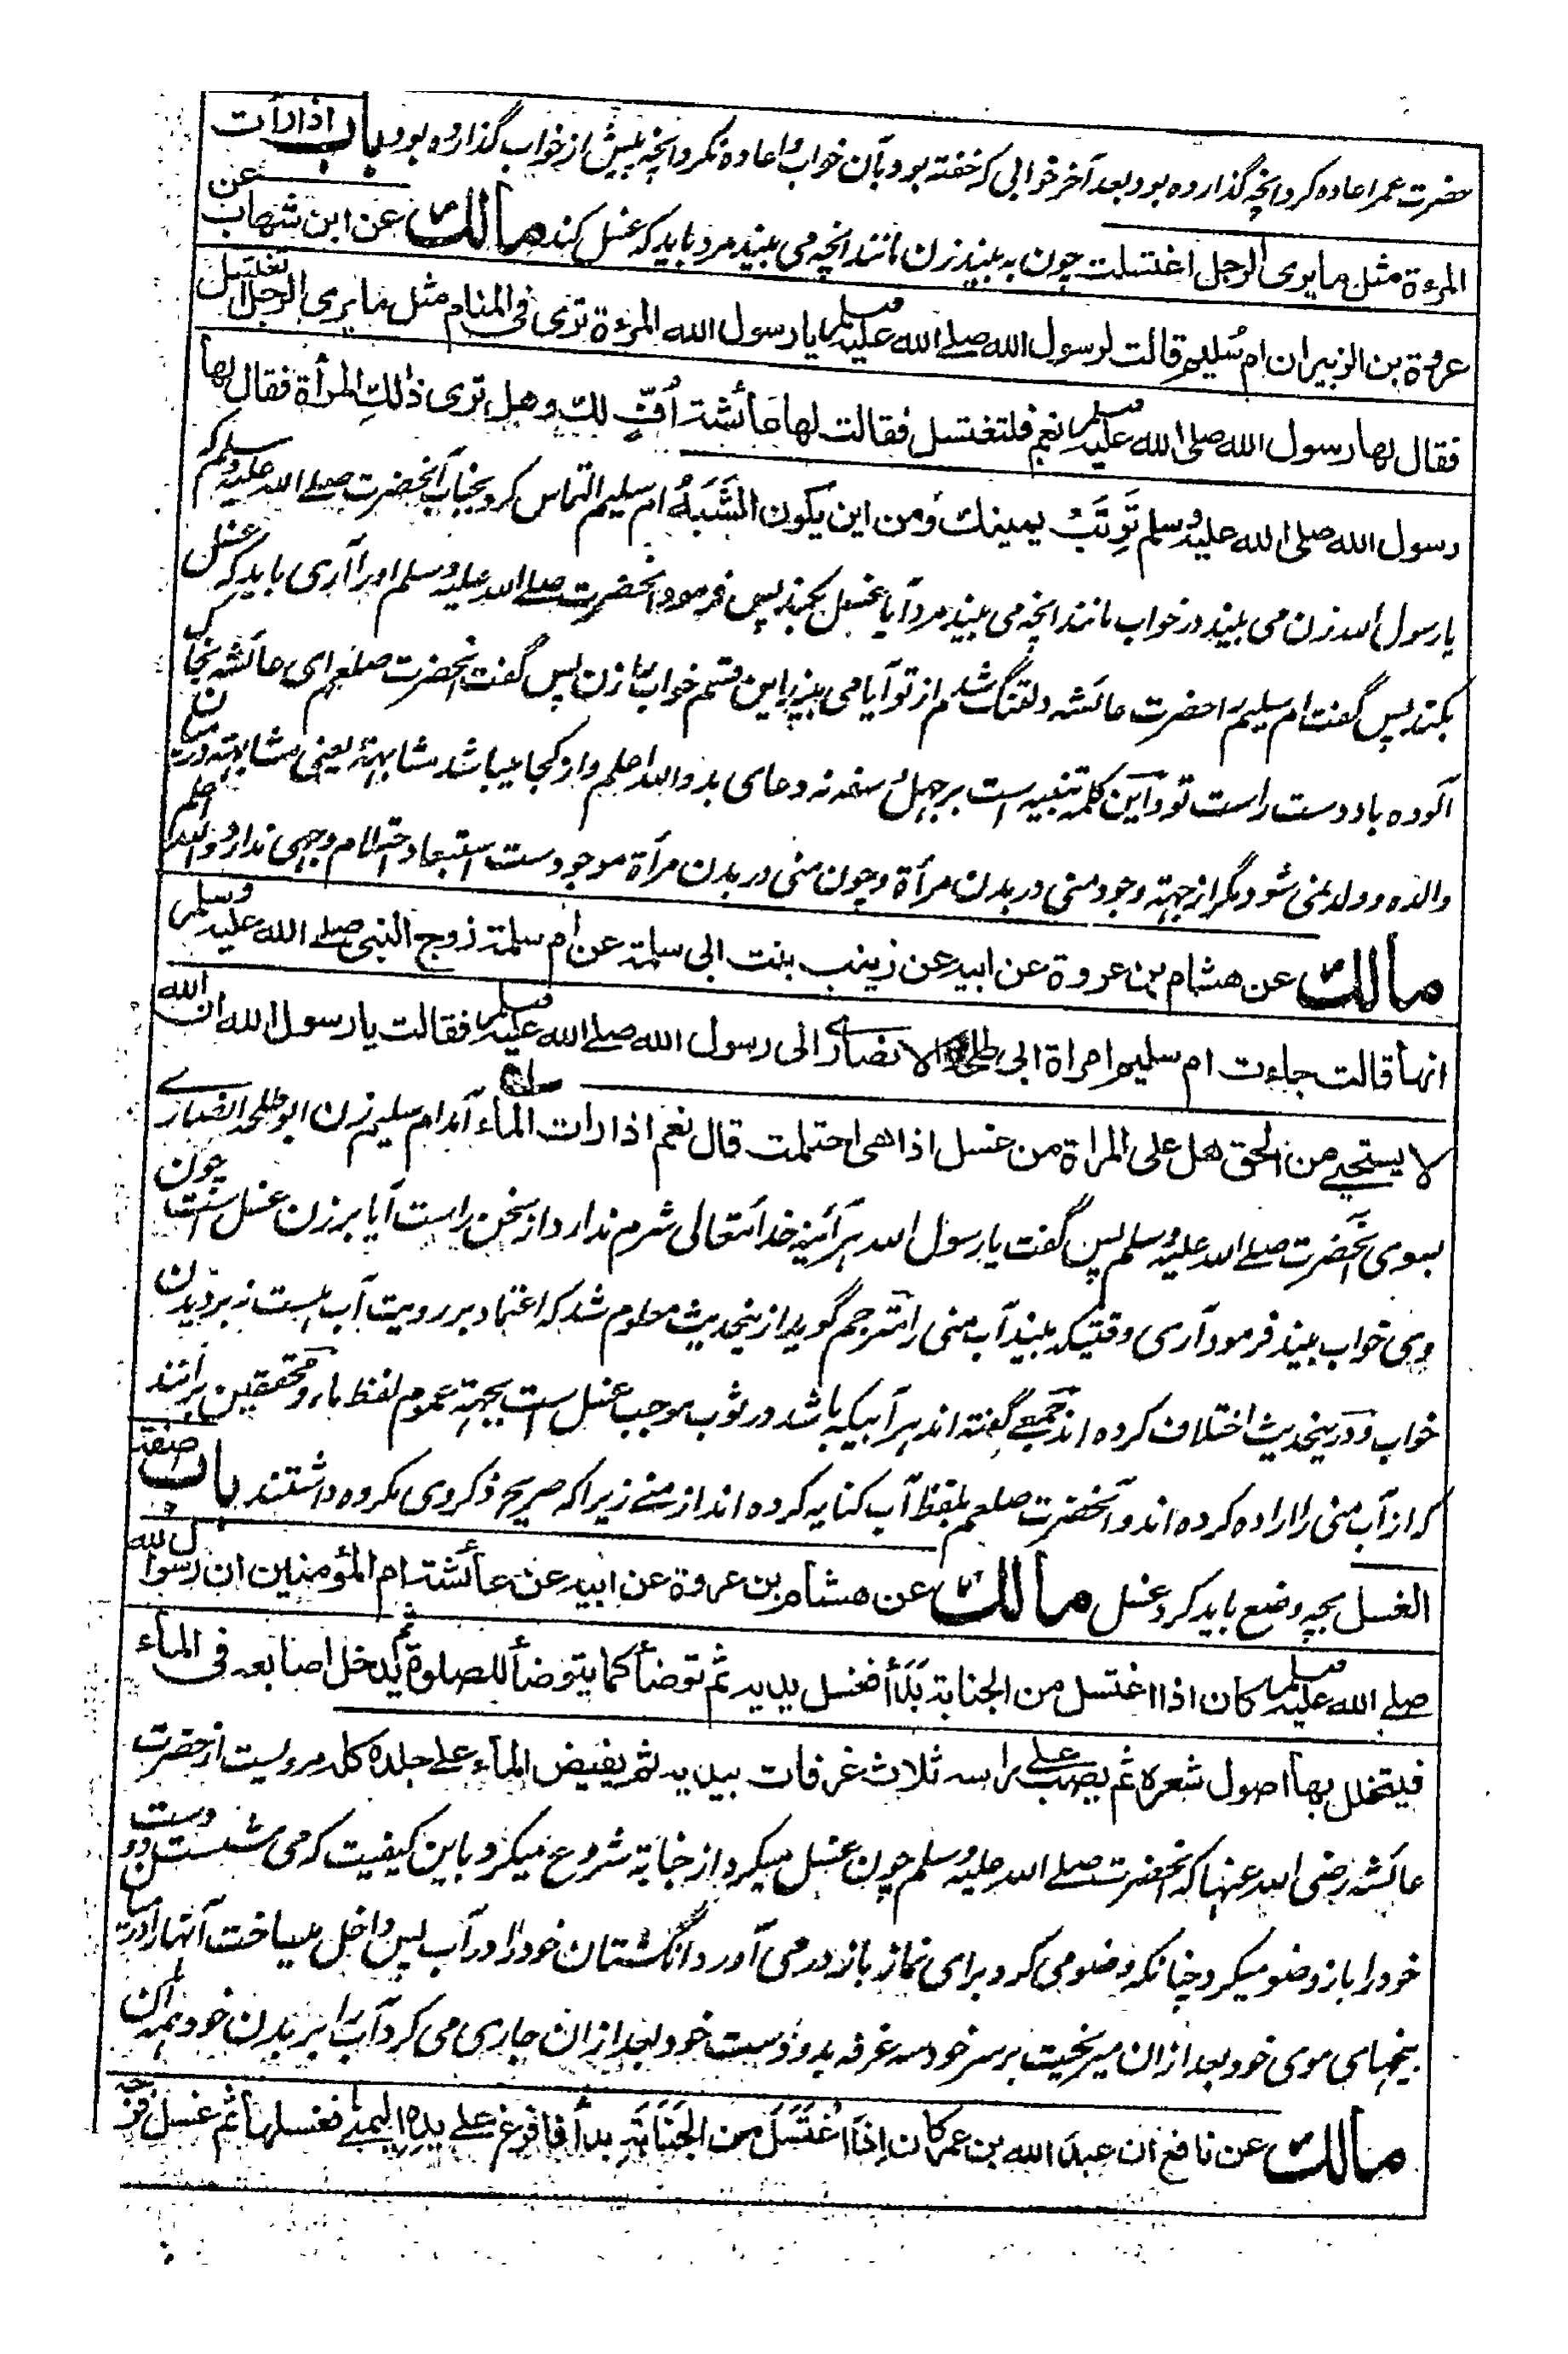 حضرت عمر اعاده کرد انچه گذارده بود بعد آخر خوابی که خفته بود بآن خواب و اعاده نکرد انچه پیش از خواب گذارده بود باب اذا رات
المرءة مثل ما یری الرجل اغتسلت چون به بیند زن مانند انچه می بیند مرد باید که غسل کند مالك عن ابن شهاب عن
عروة بن الزبیر ان ام سُلیم قالت لرسول الله صلے الله علیه وسلم یا رسول الله المرءة تری فی المنام مثل ما یری الرجل اتغتسل
فقال لها رسول الله صلی الله علیه وسلم نعم فلتغتسل فقالت لها عائشة اُفٍّ لك وهل تری ذٰلكِ المرأة فقال لها
رسول الله صلی الله علیه وسلم تَرِبَتْ یمینك وَمن این یکون الشَّبَهُ ام سلیم التماس کرد بجناب آنحضرت صلے الله علیه وسلم که
یا رسول الله زن می بیند در خواب مانند انچه می بیند مرد آیا غسل بکند پس فرمود آنحضرت صلے الله علیه وسلم او را آری باید که غسل
بکند پس گفت ام سلیم را حضرت عائشه دلتنگ شدم از تو آیا می بیند این قسم خواب را زن پس گفت آنحضرت صلعم ای عائشه بخاک
آلوده باد دست راست تو و این کلمه تنبیه است بر جهل سخن نه دعای بد والله اعلم و از کجا میباشد مشابهة یعنی مشابهة در میان
والده و ولد نمی شود مگر از جهة وجود منی در بدن مرأة و چون منی در بدن مرأة موجود ست استبعاد احتلام وجهی ندارد والله اعلم
مالك عن هشام بن عروة عن ابیه عن زینب بنت ابی سلمة عن ام سلمة زوج النبی صلے الله علیه وسلم
انها قالت جاءت ام سلیم امراة ابی طلحة الانصاری الی رسول الله صلے الله علیه وسلم فقالت یا رسول الله ان الله
لا یستحیے من الحق هل علی المراة من غسل اذا هی احتلمت قال نعم اذا رات الماء آمد ام سلیم زن ابو طلحه انصاری
بسوی آنحضرت صلے الله علیه وسلم پس گفت یا رسول الله هر آئینه خدا تعالی شرم ندارد از سخن راست آیا بر زن غسل است چون
وی خواب بیند فرمود آری وقتیکه بیند آب منی را مترجم گوید ازینحدیث معلوم شد که اعتماد بر رویت آب است نه بر دیدن
خواب و درینحدیث اختلاف کرده اند جمعے گفته اند هر آبیکه باشد در ثوب موجب غسل است بجهة عموم لفظ ماء و محققین بر آنند
که از آب منی را اراده کرده اند و آنحضرت صلعم بلفظ آب کنایه کرده اند از منے زیرا که صریح ذکر وی مکروه داشتند باب صفة
الغسل بچه وضع باید کرد غسل مالك عن هشام بن عروة عن ابیه عن عائشة ام المؤمنین ان رسول الله
صلے الله علیه وسلم کان اذا اغتسل من الجنابة بَدَأ فغسل یدیه ثم توضأ کما یتوضأ للصلوة ثم یُدخل اصابعه فی الماء
فیتخلل بها اصول شعره ثم یصب علی راسه ثلاث غرفات بیدیه ثم یفیض الماء علے جلده کله مرویست از حضرت
عائشه رضی الله عنها که آنحضرت صلے الله علیه وسلم چون غسل میکرد از جنابة شروع میکرد باین کیفیت که می شست دو دست
خود را باز وضو میکرد چنانکه وضو می کرد برای نماز باز در می آورد انگشتان خود را در آب پس داخل میساخت آنها را در میان
بیخهای موی خود بعد ازان میریخت بر سر خود سه غرفه بدو دست خود بعد ازان جاری می کرد آب را بر بدن خود همه آن
مالك عن نافع ان عبد الله بن عمر کان اِذَا اغْتَسَلَ من الجَنَابَةِ بدأ فافرغ علے یدِهِ الیمنٰے فغسلها ثم غسل فرجه